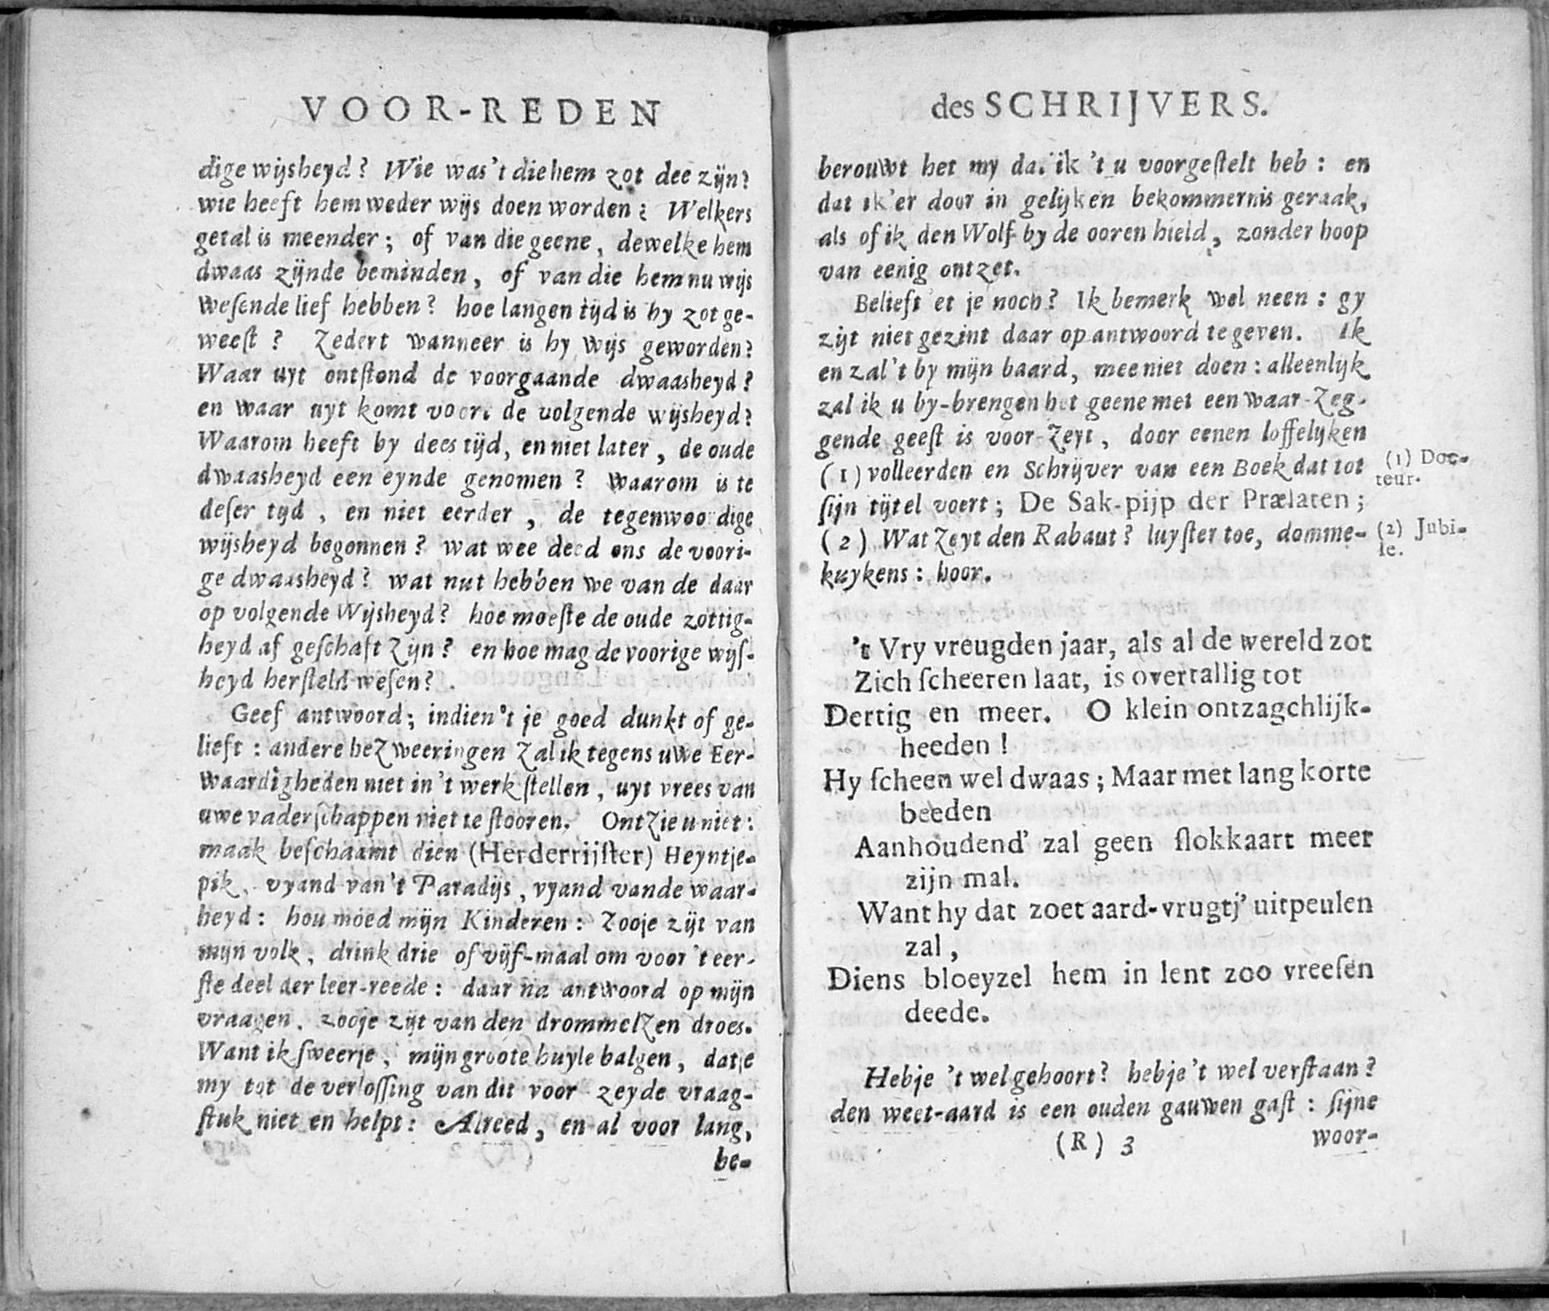 VOOR-REDEN
dige wijsheyd? Wie was't die hem zot dee zijn?
wie heeft hem weder wijs doen worden? Welkers
getal is meender; of van die geene, dewelke hem
dwaas zijnde beminden, of van die hem nu wijs
wesende lief hebben? hoe langen tijd is hy zot ge-
weest? Zedert wanneer is hy wijs geworden?
Waar uyt ontstond de voorgaande dwaasheyd?
en waar uyt komt voort de volgende wijsheyd?
Waarom heeft by dees tijd, en niet later, de oude
dwaasheyd een eynde genomen? waarom is te
deser tijd, en niet eerder, de tegenwoordige
wijsheyd begonnen? wat wee deed ons de voori-
ge dwaasheyd? wat nut hebben we van de daar
op volgende Wijsheyd? hoe moeste de oude zottig-
heyd af geschaft Zijn? en hoe mag de voorige wijs-
heyd hersteld wesen?
Geef antwoord; indien't je goed dunkt of ge-
lieft: andere beZweeringen Zal ik tegens uwe Eer-
waardigheden niet in't werk stellen, uyt vrees van
uwe vaderschappen niet te stooren. OntZie u niet:
maak beschaamt dien (Herderrijster) Heyntje-
pik, vyand van't Paradijs, vyand vande waar-
heyd: hou moed mijn Kinderen: Zooje zijt van
mijn volk, drink drie of vijf-maal om voor 't eer-
ste deel der leer-reede: daar na antwoord op mijn
vraagen. zooje zijt van den drommelZen droes.
Want ik sweerje, mijn groote huyle balgen, dat je
my tot de verlossing van dit voor zeyde vraag-
stuk niet en helpt: Alreed, en al voor lang,
be-
des SCHRIJVERS.
berouwt het my dat ik 't u voorgestelt heb: en
dat ik'er door in gelijken bekommernis geraak,
als of ik den Wolf by de ooren hield, zonder hoop
van eenig ontzet.
Belieft et je noch? Ik bemerk wel neen: gy
zijt niet gezint daar op antwoord te geven. Ik
en zal't by mijn baard, mee niet doen: alleenlijk
zal ik u by-brengen het geene met een waar-Zeg-
gende geest is voor-Zeyt, door eenen loffelijken
(1) volleerden en Schrijver van een Boek dat tot
sijn tijtel voert; De Sak-pijp der Prælaten;
(2) Wat Zeyt den Rabaut? luyster toe, domme-
kuykens: hoor.
(1) Doc-
teur.
(2) Jubi-
le.
't Vry vreugden jaar, als al de wereld zot
Zich scheeren laat, is overtallig tot
Dertig en meer. O klein ontzagchlijk-
heeden!
Hy scheen wel dwaas; Maar met lang korte
beeden
Aanhoudend' zal geen slokkaart meer
zijn mal.
Want hy dat zoet aard-vrugtj' uitpeulen
zal,
Diens bloeyzel hem in lent zoo vreesen
deede.
Hebje 't wel gehoort? hebje't wel verstaan?
den weet-aard is een ouden gauwen gast: sijne
(R) 3
woor-